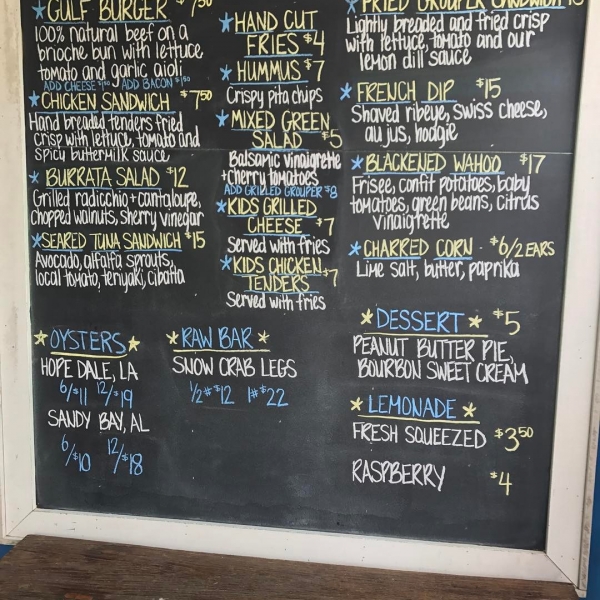 ★GULF BURGER $7 50
100% natural beef on a
brioche bun with lettuce,
tomato and garlic aioli
ADD CHEESE $1.00 ADD BACON $1.50
★CHICKEN SANDWICH $7 50
Hand breaded tenders fried
crisp with lettuce, tomato and
spicy buttermilk sauce
★BURRATA SALAD $12
Grilled radicchio + cantaloupe,
chopped walnuts, sherry vinegar
★SEARED TUNA SANDWICH $15
Avocado, alfalfa sprouts,
local tomato, teriyaki, cibatta
★HAND CUT
FRIES $4
★HUMMUS $7
Crispy pita chips
★MIXED GREEN
SALAD $5
Balsamic vinaigrette
+ cherry tomatoes
ADD GRILLED GROUPER $8
★KIDS GRILLED
CHEESE $7
Served with fries
★KIDS CHICKEN
TENDERS $7
Served with fries
★FRIED GROUPER SANDWICH
Lightly breaded and fried crisp
with lettuce, tomato and our
lemon dill sauce
★FRENCH DIP $15
Shaved ribeye, swiss cheese,
au jus, hoagie
★BLACKENED WAHOO $17
Frisee, confit potatoes, baby
tomatoes, green beans, citrus
vinaigrette
★CHARRED CORN - $6/2 EARS
Lime salt, butter, paprika
★OYSTERS★
HOPE DALE, LA
6/$11 12/$19
SANDY BAY, AL
6/$10 12/$18
★RAW BAR★
SNOW CRAB LEGS
1/2# $12 1# $22
★DESSERT★ $5
PEANUT BUTTER PIE,
BOURBON SWEET CREAM
★LEMONADE★
FRESH SQUEEZED $3 50
RASPBERRY $4